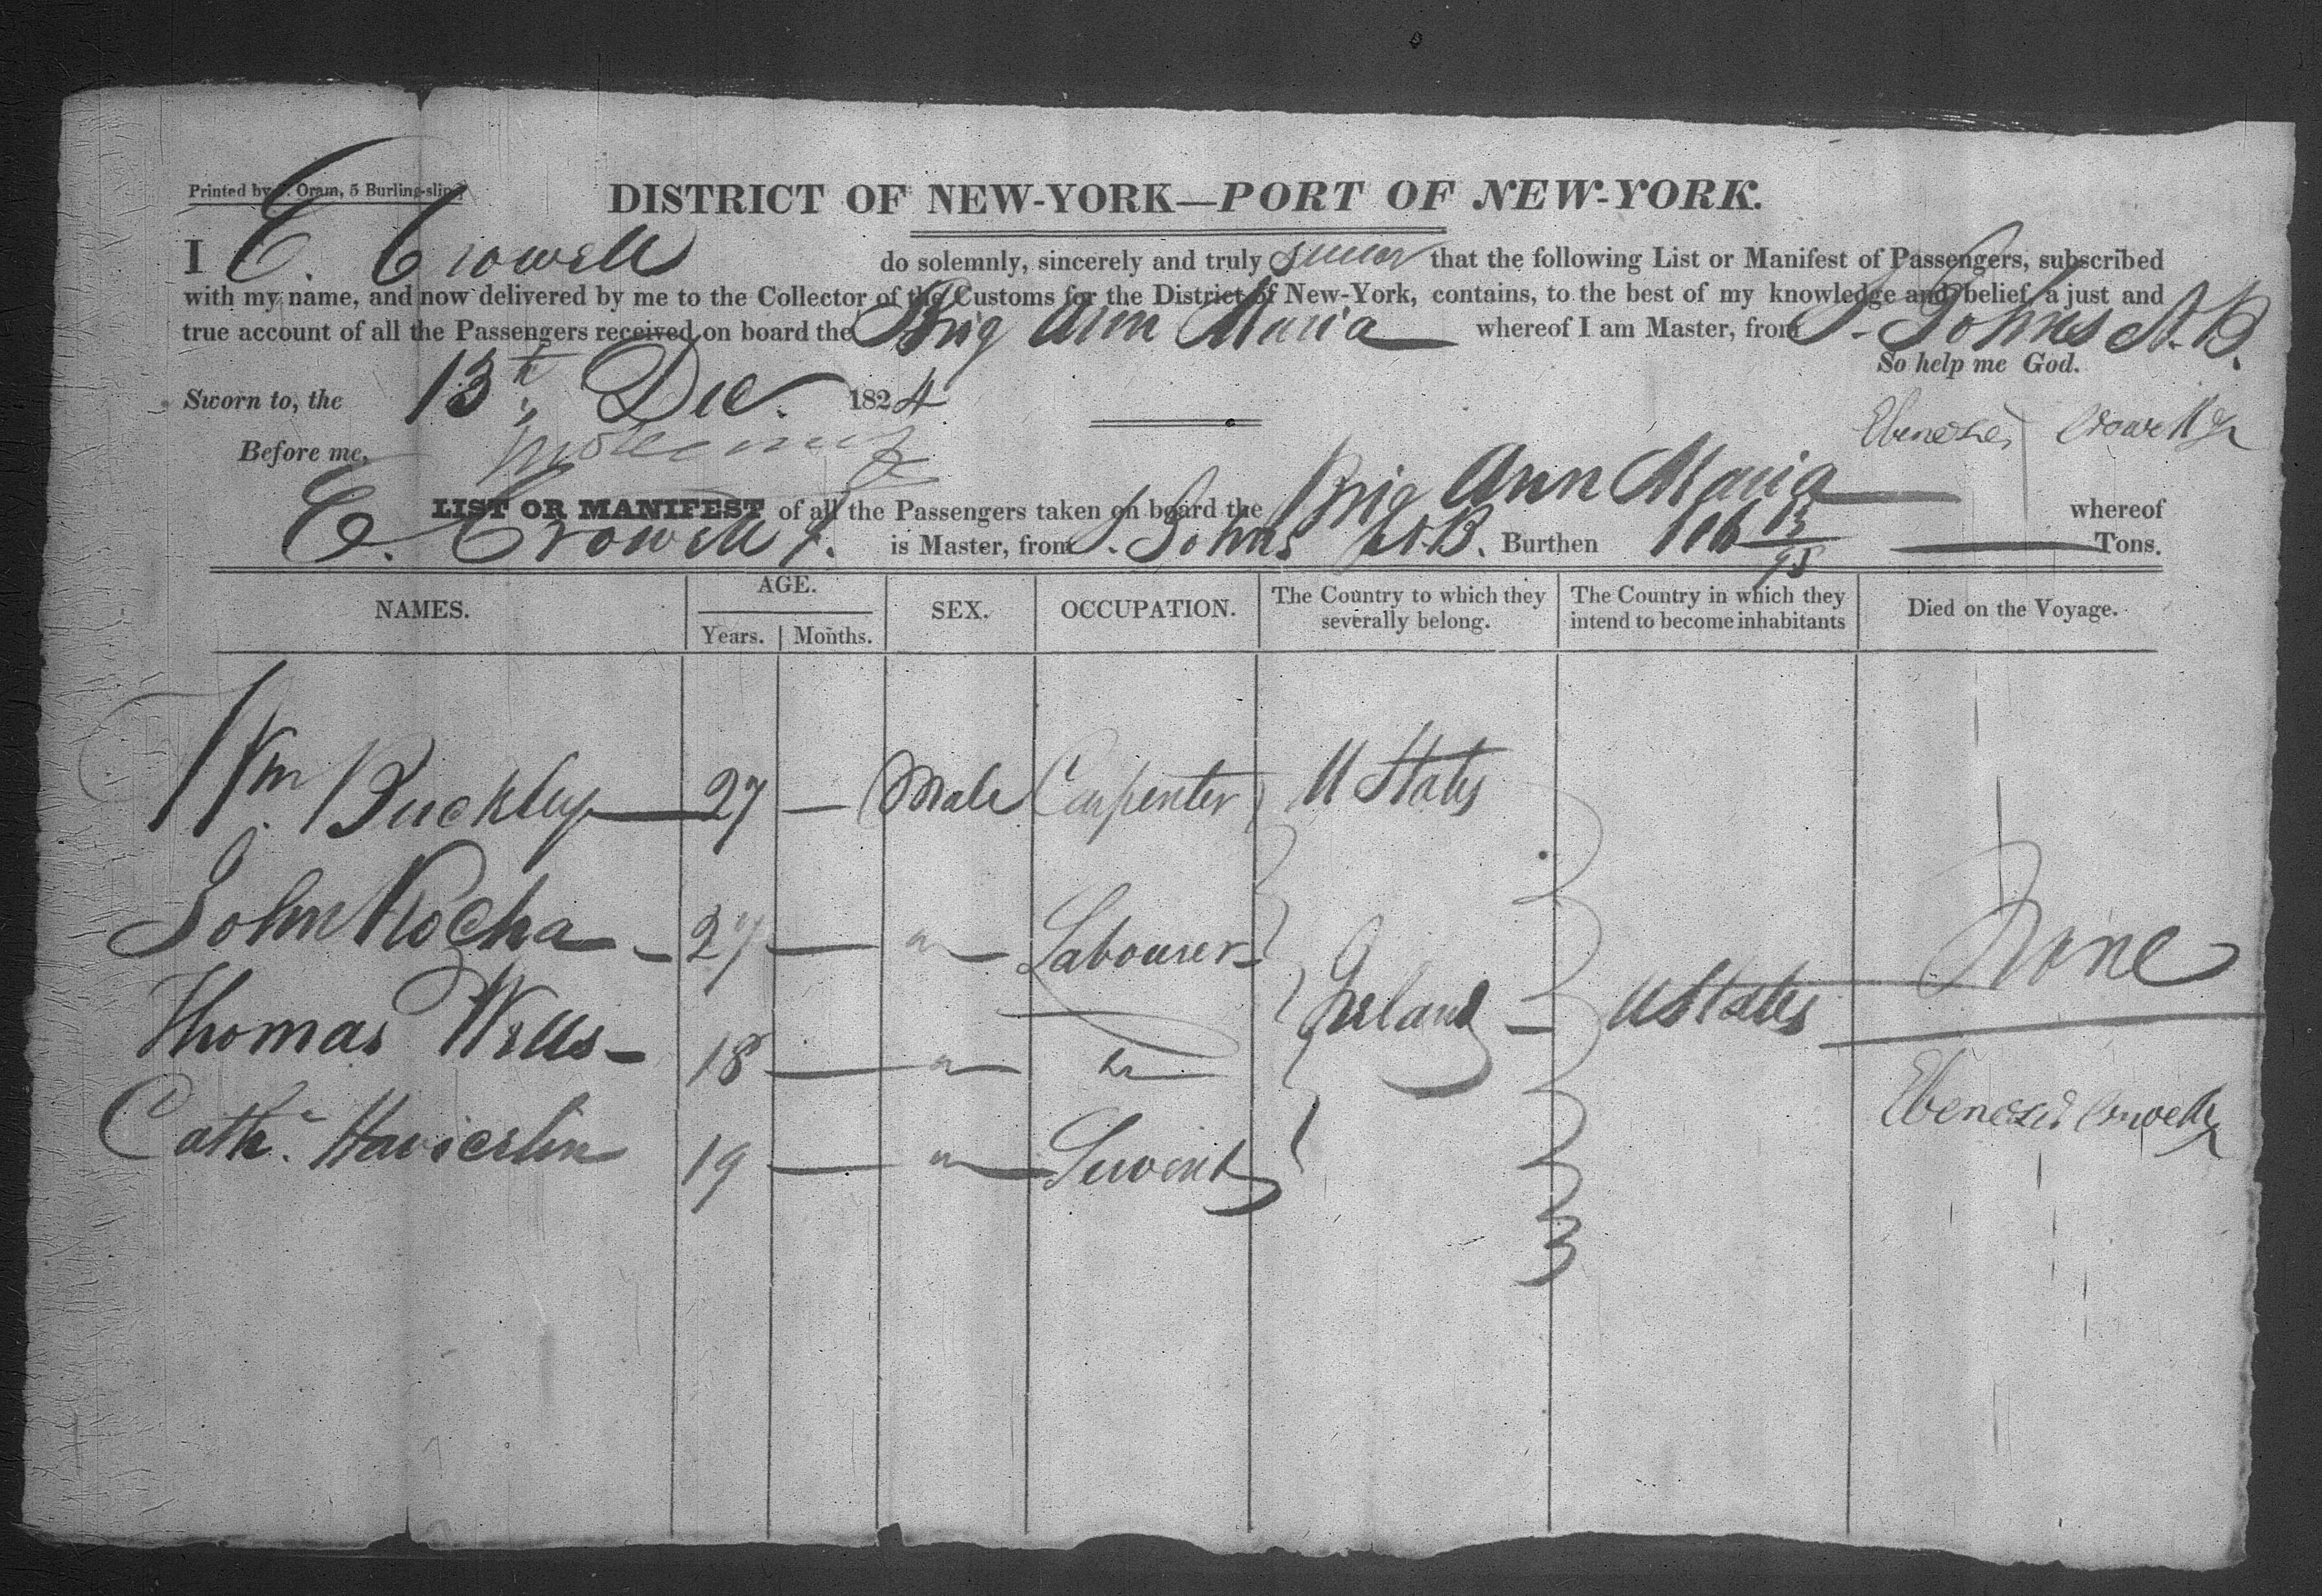 Printed by J. Oram, 5 Burling-slip.
DISTRICT OF NEW-YORK—PORT OF NEW-YORK.
I E. Crowell do solemnly, sincerely and truly swear that the following List or Manifest of Passengers, subscribed
with my name, and now delivered by me to the Collector of the Customs for the District of New-York, contains, to the best of my knowledge and belief, a just and
true account of all the Passengers received on board the Brig Ann Maria whereof I am Master, from St. Johns N.B.
So help me God.
Sworn to, the 13th Dec. 1824
Ebenezer Crowell Jr
Before me,
LIST OR MANIFEST of all the Passengers taken on board the Brig Ann Maria whereof
E. Crowell Jr. is Master, from St. Johns N.B. Burthen 116 13/95 Tons.
NAMES. AGE. SEX. OCCUPATION. The Country to which they severally belong. The Country in which they intend to become inhabitants Died on the Voyage.
Years. Months.
Wm Buckley 27 — Male Carpenter U States
John Rocha — 27 — " — Labourer
Ireland — U States None
Thomas Wells — 18 — " — "
Ebenezer Crowell Jr
Cath. Havierlin 19 — " — Servent